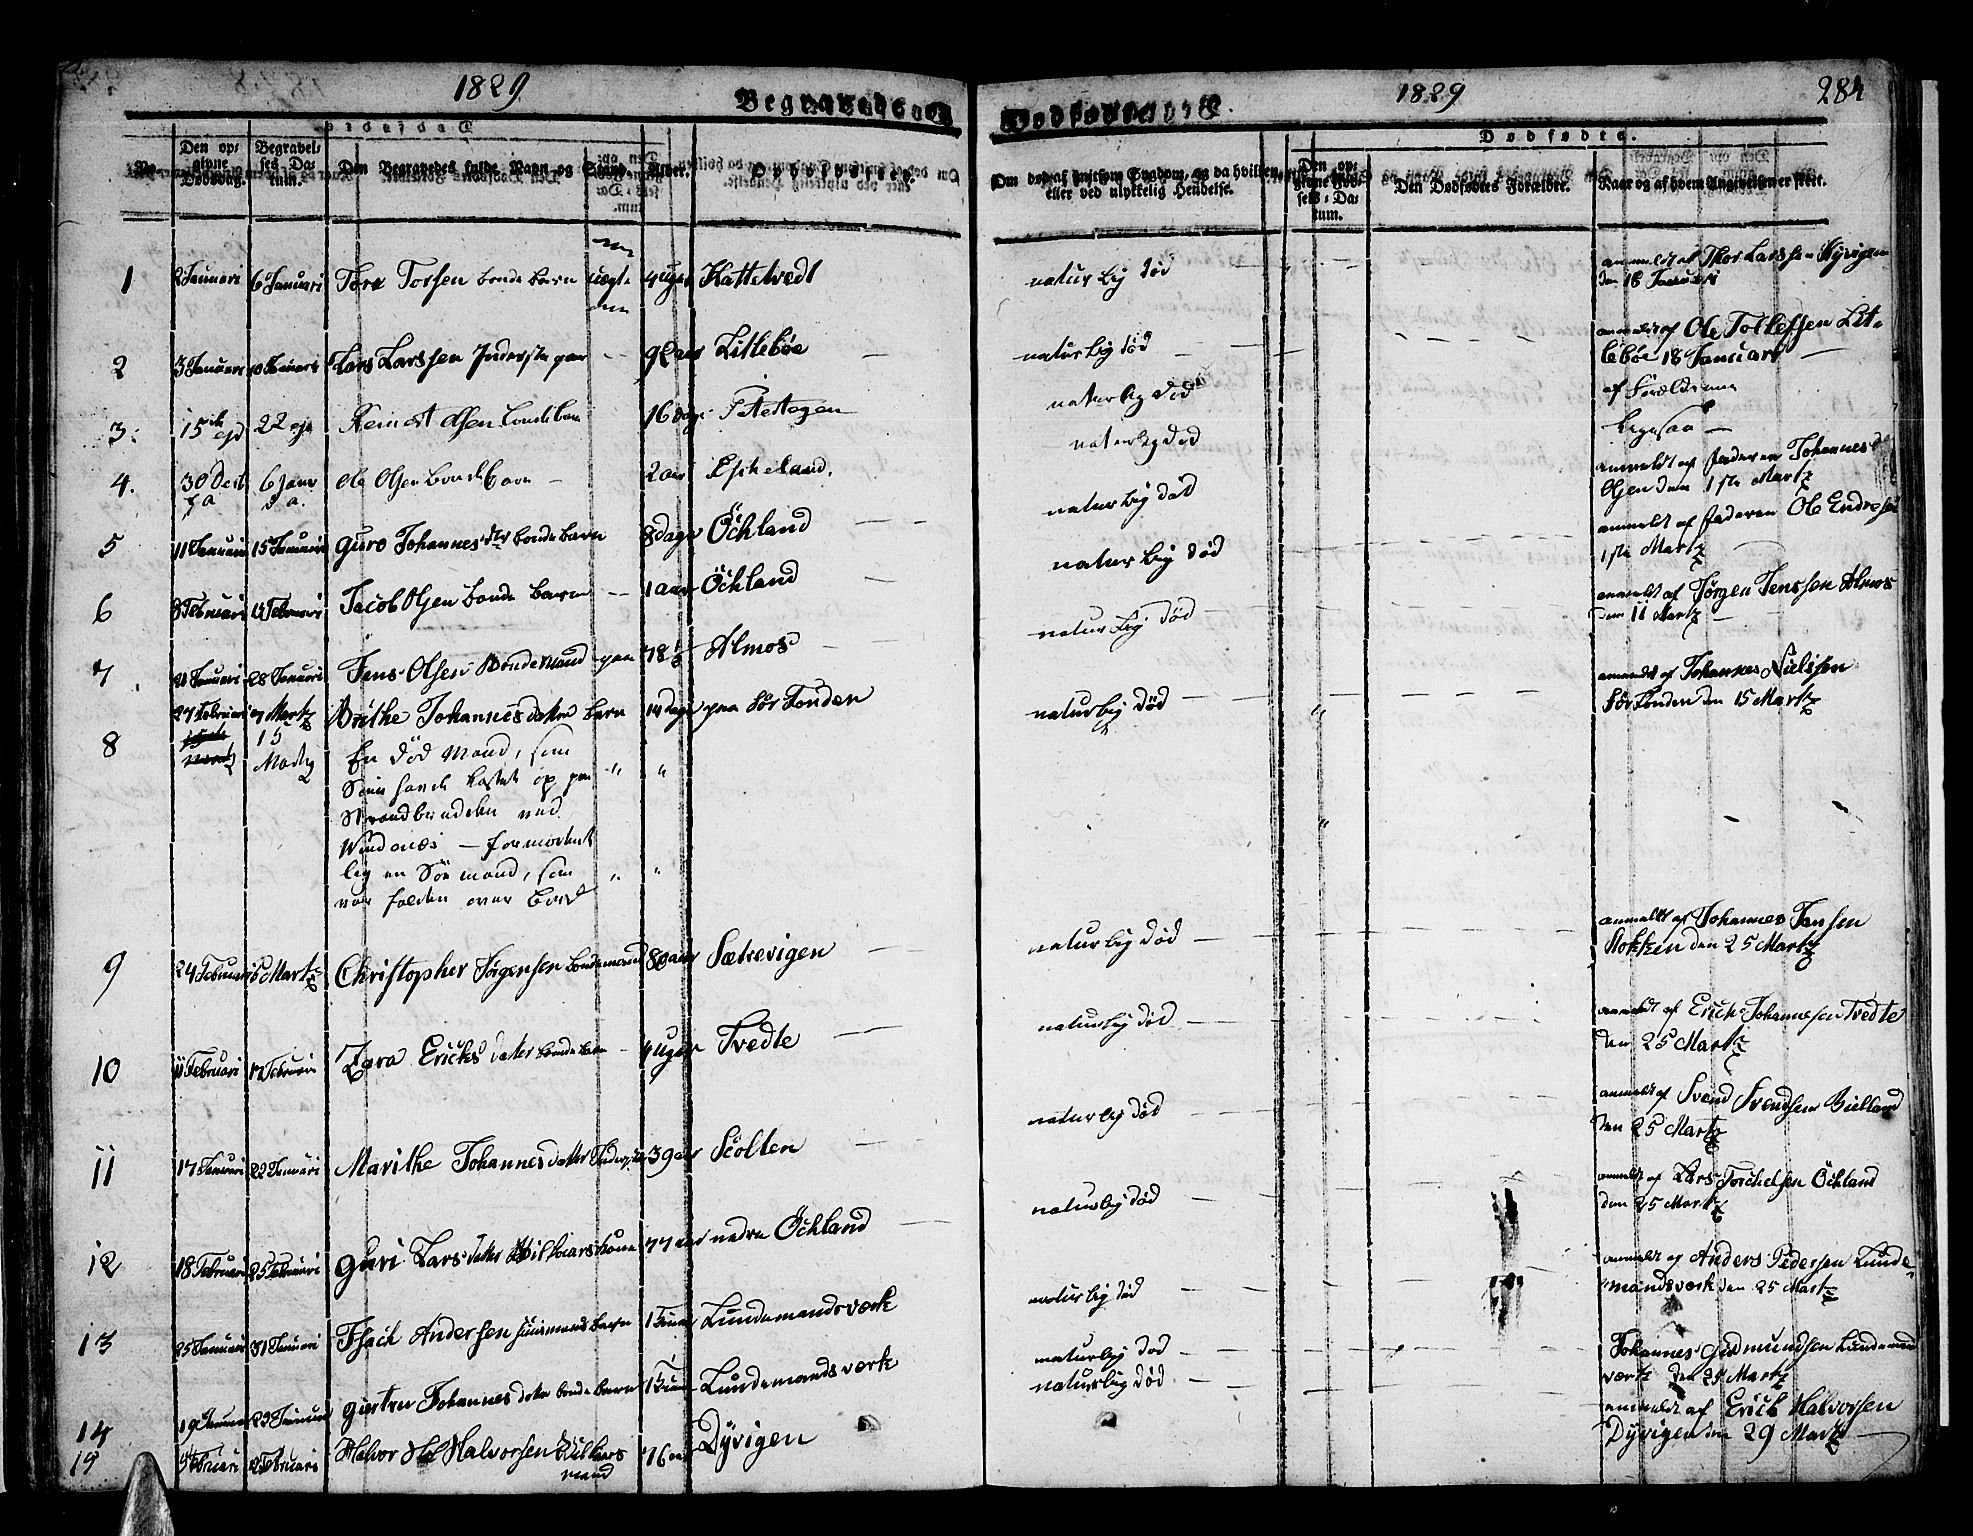 1829
Begravede
Døde
1829
284
Dødfødte.
No.
Den opgivne Dødsdag.
Begravelses Datum.
Den Begravedes fulde Navn og Stand.
Alder.
Opholdssted.
Om død af smitsom Sygdom, og da hvilken, eller ved ulykkelig Hendelse.
Den opgivne Fødsels-Datum.
Den Dødfødtes Forældre.
Naar og af hvem Angivelsen er skeet.
1 2 Januari 6 Januari Tore Torsen bonde barn uægte 4 uger Kattetvedt naturlig død anmeldt af Thor Larssen Hyvigen
den 18 Januari
2 3 Januari 10 Januari Lars Larssen Inderste paa 92 aar Littlebøe naturlig død anmeldt af Ole Tollefssen Lit-
lebøe 18 Januari
3. 15de ejd 22 ejd Reindt Olsen bonde barn 16 dage naturlig død af Forældrene
4. 30 Dec 6 Janv Ole Olsen bondebarn 2 aar Eskeland. naturlig død ligesaa
5 11 Januari 15 Januari Guro Johannesdtr bonde barn 8 dage Öchland naturlig død anmeldt af Faderen Johannes
Olsen den 1ste Martz
6 8 Februari 14 Februari Jacob Olsen bonde barn 1 aar Öchland naturlig død anmeldt af Faderen Ole Endresen
1ste Martz
7 21 Januari 28 Januari Jens Olsen Bondemand paa 78 Almos naturlig død anmeldt af Jørgen Jenssen Almos
den 11 Martz
8 27 Februari 7 Martz Brithe Johannesdatter barn 14 dage paa Sör Fonden naturlig død anmeldt af Johannes Nielssen
Sör Fonden den 15 Martz
15
Martz
En död Mand, som
Söen havde kastet op paa
Strandbredden ved
Windenæs – formodent-
lig en Söe mand, som
var falden over Bord
9 24 Februari 5 Martz Christopher Jörgensen bondemand 80 aar Sætrevigen naturlig død anmeldt af Johannes Jansen
Stokken den 25 Martz
10 11 Februari 17 Februari Zara Ericksdater bonde barn 4 uger Tvedte naturlig død anmeldt af Erick Johannesen Tvedte
den 25 Martz
11 17 Januari 22 Januari Marithe Johannesdater Inderste 39 aar Scolten naturlig død anmeldt af Svend Svendsen Bielland
den 25 Martz
12 18 Februari 25 Februari Guri Larsdater Wilkaarskone 77 aar nedre Öchland naturlig død anmeldt af Lars Torchelsen Öchland
den 25 Martz
13 25 Januari 31 Januari Isach Andersen huusmans barn Lundemandsværk naturlig død anmeldt og Anders Pedersen Lunde-
mandsværk den 25 Martz
14 19 Januari 23 Januari Giertru Johannesdater bonde barn Lundemandsværk naturlig død Johannes Gudmundsen Lundemand
værk den 29 Martz
15 Februari 12 Februari Halvor Halvorssen Wilkaars
mand 76 aar Dyvigen naturlig død anmeldt af Erick Halvorsen
Dyvigen den 29 Martz